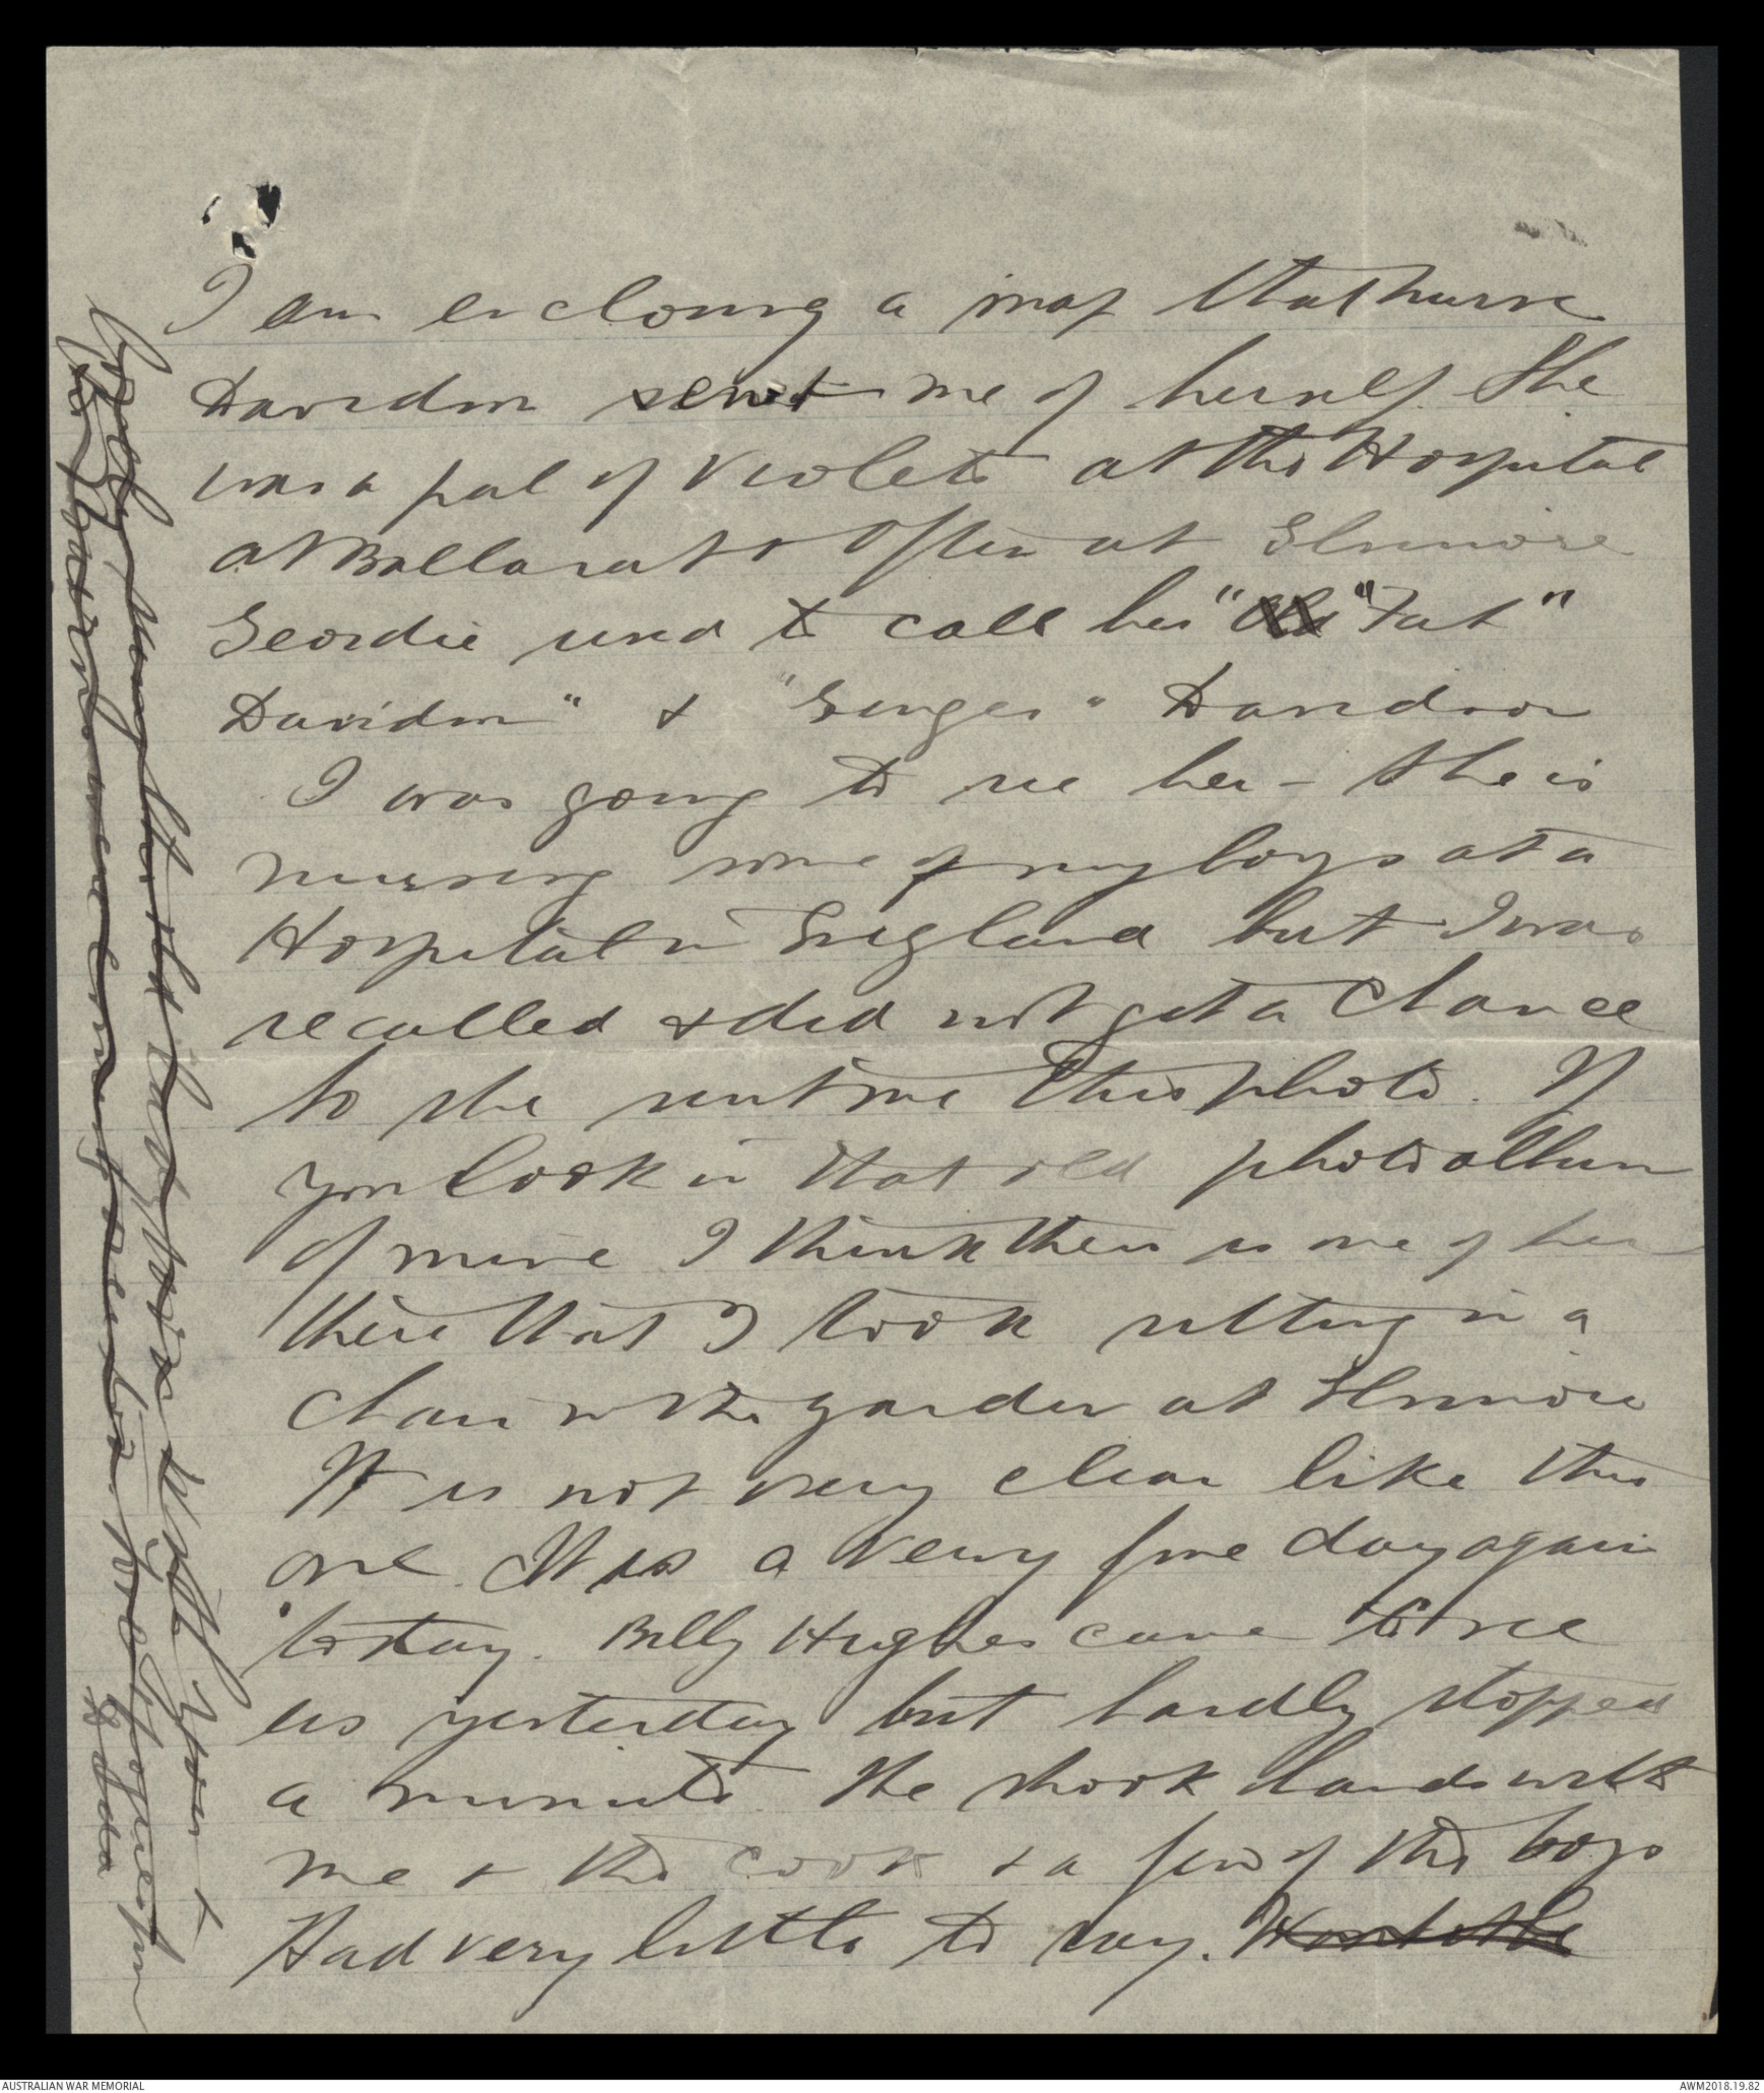 I am enclosing a snap that nurse
Davidson sent me of herself. She
was a pal of Violets at the Hospital
at Ballarat & often at Elsmore
Geordie used to call her " "Fat"
Davidson" & "Ginger" Davidson
I was going to see her - she is
nursing some of my boys at a
Hospital in England but I was
recalled & did not get a chance
so she sent me this photo. If
you look in that old photo album
of mine I think there is one of her
there that I took sitting in a
chair in the garden at Elsmore
It is not very clear like this
one. It is a very fine day again
today. Billy Hughes came to see
us yesterday but hardly stopped
a minute. He shook hands with
me & the cook & a few of the boys
Had very little to say.
AUSTRALIAN WAR MEMORIAL
AWM2018.19.82